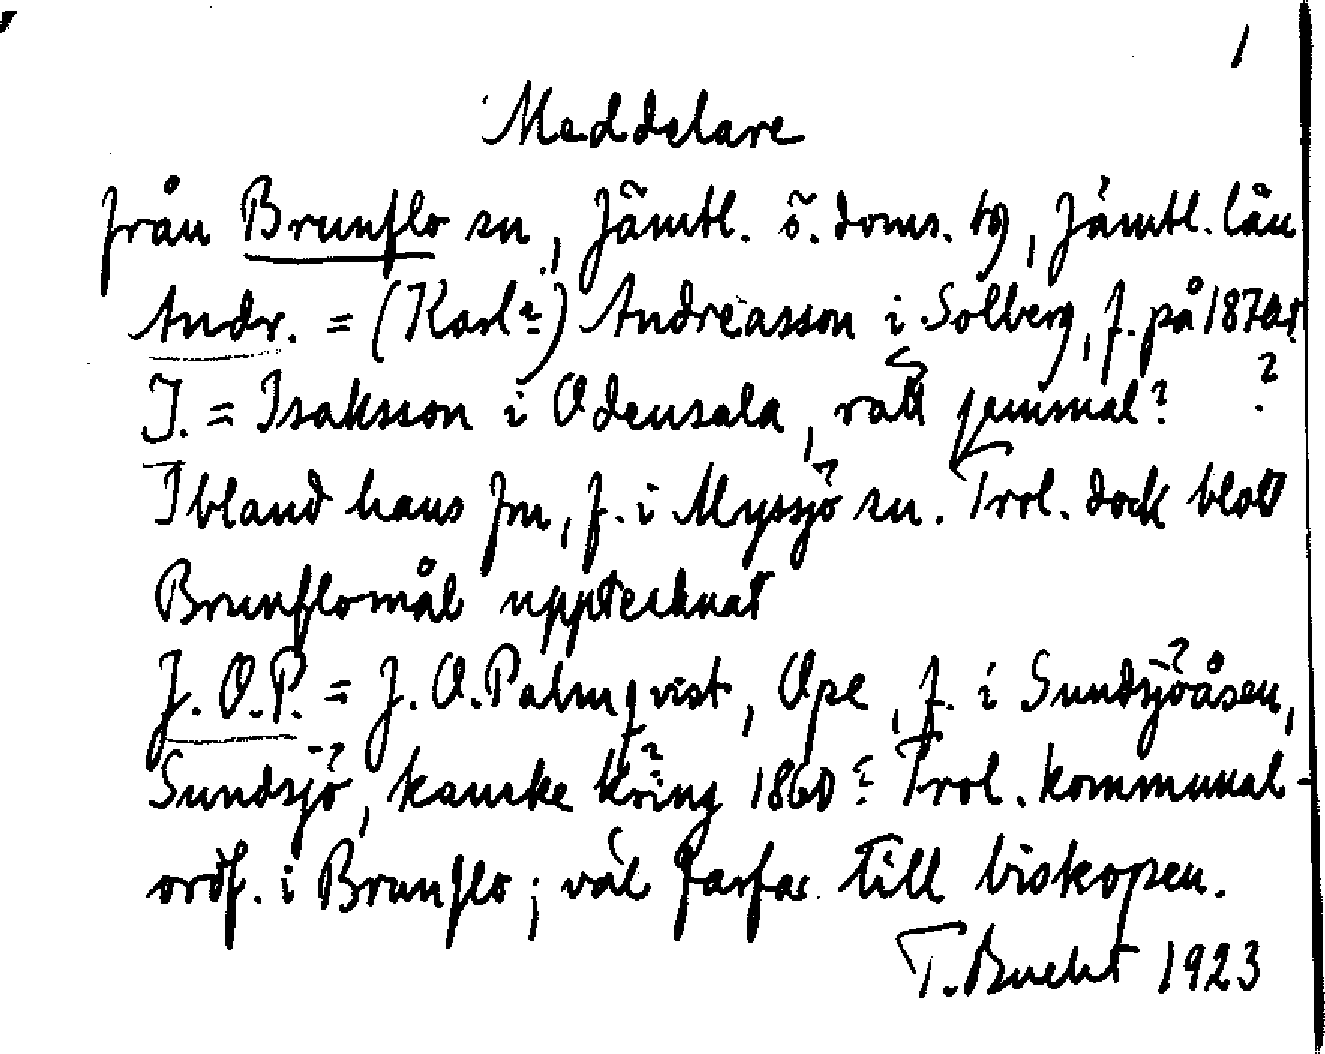 1
Meddelare
från Brunflo sn, Jämtl. ö. doms. tg, Jämtl. län
Andr. = (Karl?) Andreasson i Solberg, f. på 1870t.
J. = Isaksson i Odensala, rätt gammal? ?
Ibland hans fru, f. i Myssjö sn. Trol. dock blott
Brunflomål upptecknat
J. O. P. = J. O. Palmqvist, Ope, f. i Sundsjöåsen,
Sundsjö, kanske kring 1860? Trol. kommunal-
ordf. i Brunflo; väl farfar till biskopen.
T. Bucht 1923